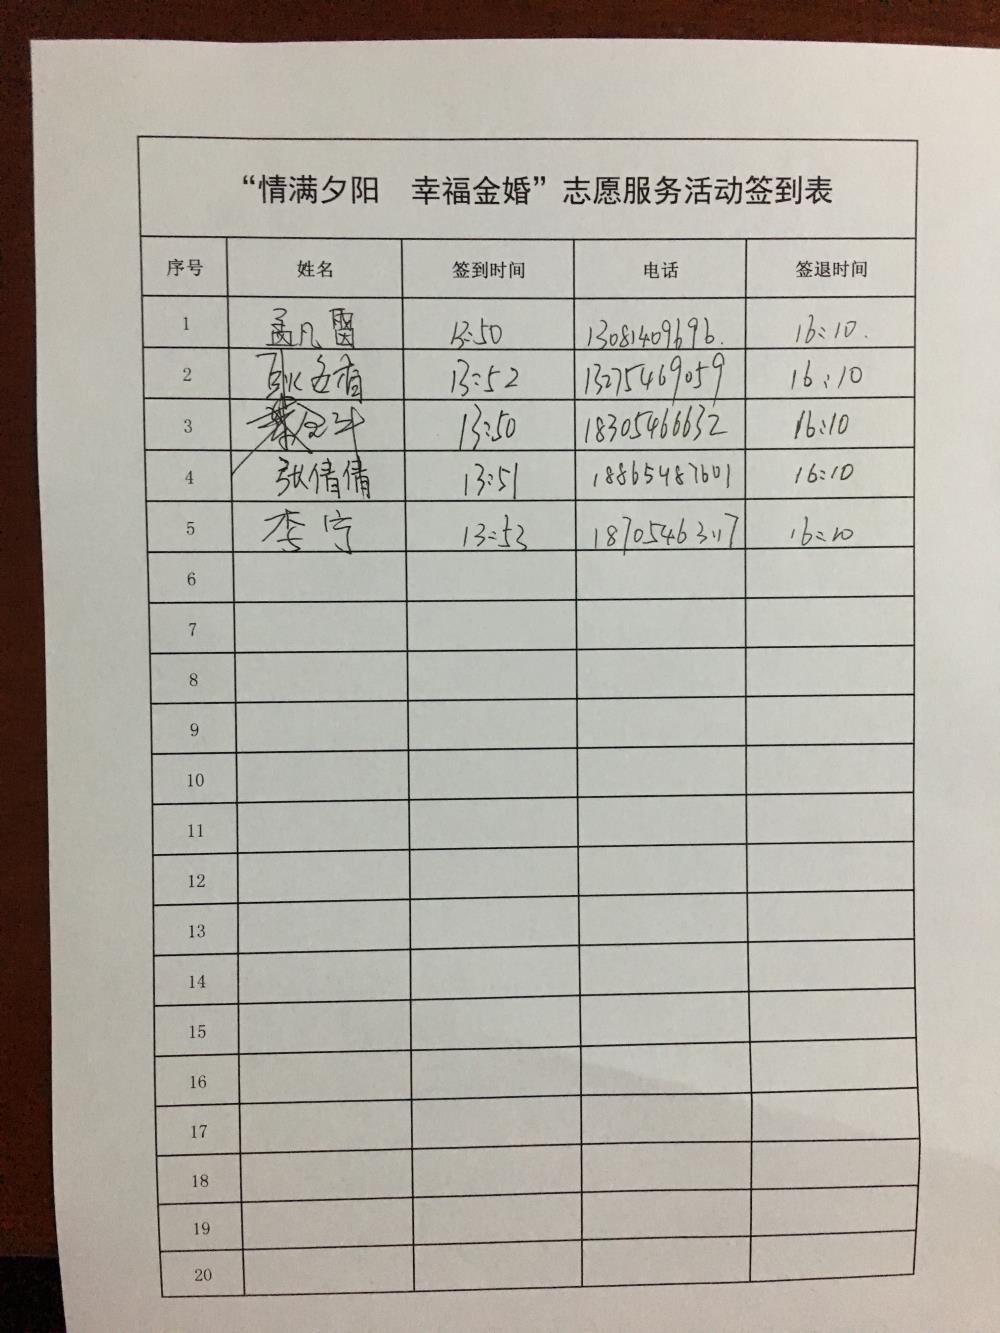 “情满夕阳　幸福金婚”志愿服务活动签到表
序号 姓名 签到时间 电话 签退时间
1 孟凡雷 13:50 13081409696. 16:10.
2 13:52 13275469059 16:10
3 13:50 18305466632 16:10
4 张倩倩 13:51 18865487601 16:10
5 李宁 13:53 18705463117 16:10
6
7
8
9
10
11
12
13
14
15
16
17
18
19
20